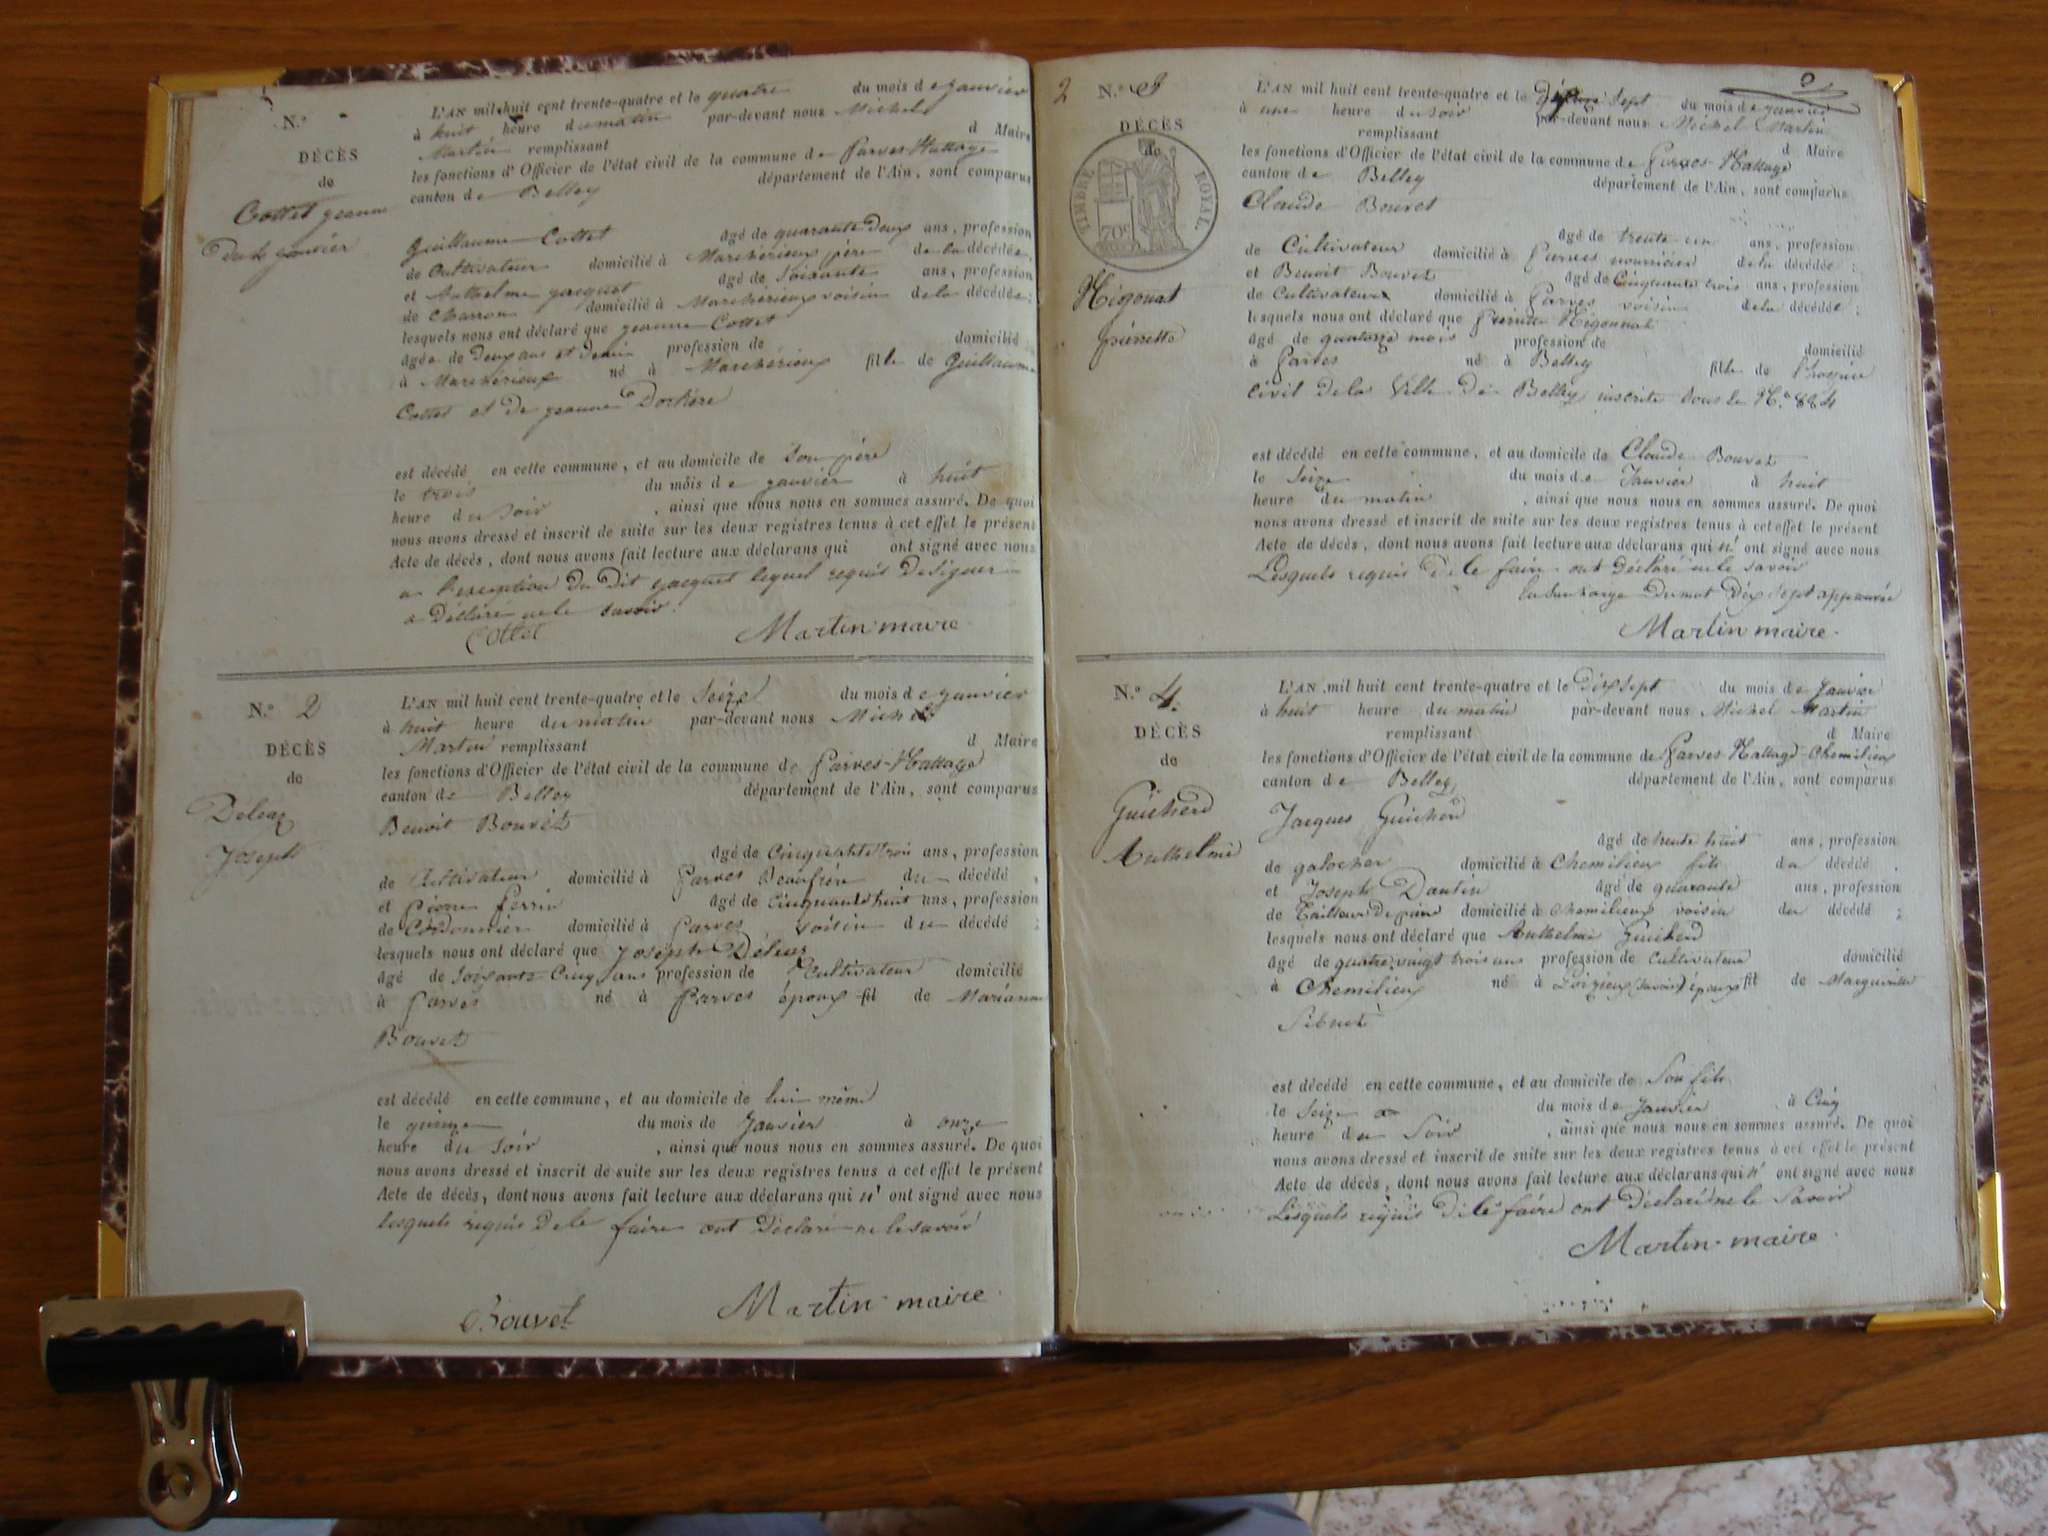 N.º
DÉCÈS
de
Cottet jeanne
Du 4 janvier
L'AN mil huit cent trente-quatre et le quatre du mois de janvier
à huit heure du matin par-devant nous Michel
Martin remplissant d Maire
les fonctions d'Officier de l'état civil de la commune de Parves-Nattage
canton de Belley département de l'Ain, sont comparus
Guillaume Cottet âgé de quarante deux ans, profession
de Cultivateur domicilié à Marchérieux père de la décédée,
et Anthelme jacquet âgé de soixante ans, profession
de Charron domicilié à Marchérieux voisin de la décédée;
lesquels nous ont déclaré que jeanne Cottet
âgée de deux ans et demi profession de domicilié
à Marchérieux né à Marchérieux fille de Guillaume
Cottet et de jeanne
est décédé en cette commune, et au domicile de son père
le trois du mois de janvier à huit
heure du soir , ainsi que nous nous en sommes assuré. De quoi
nous avons dressé et inscrit de suite sur les deux registres tenus à cet effet le présent
Acte de décès, dont nous avons fait lecture aux déclarans qui ont signé avec nous
a l'exception du dit jacquet lequel requis de signer
a déclaré ne le savoir.
Cottet Martin maire
N.º 2
DÉCÈS
de
Déleaz
Joseph
L'AN mil huit cent trente-quatre et le seize du mois de janvier
à huit heure du matin par-devant nous Michel
Martin remplissant d Maire
les fonctions d'Officier de l'état civil de la commune de Parves-Nattage
canton de Belley département de l'Ain, sont comparus
Benoit Bouvet
âgé de Cinquante trois ans, profession
de Cultivateur domicilié à Parves beaufrère du décédé,
et Pierre Perrin âgé de cinquante huit ans, profession
de Cordonnier domicilié à Parves voisin du décédé;
lesquels nous ont déclaré que Joseph Déleaz
âgé de soixante Cinq ans profession de Cultivateur domicilié
à Parves né à Parves époux fil de Marianne
Bouvet
est décédé en cette commune, et au domicile de lui même
le quinze du mois de Janvier à onze
heure du soir , ainsi que nous nous en sommes assuré. De quoi
nous avons dressé et inscrit de suite sur les deux registres tenus à cet effet le présent
Acte de décès, dont nous avons fait lecture aux déclarans qui n' ont signé avec nous
lesquels requis de le faire ont déclaré ne le savoir
Bouvet Martin maire
2
N.º 3
DÉCÈS
de
TIMBRE ROYAL
70c
Pierrette
L'AN mil huit cent trente-quatre et le dix sept du mois de janvier
à une heure du soir par-devant nous Michel Martin
remplissant d Maire
les fonctions d'Officier de l'état civil de la commune de Parves-Nattage
canton de Belley département de l'Ain, sont comparus
Claude Bouvet
âgé de trente un ans, profession
de Cultivateur domicilié à Parves nourricier de la décédée;
et Benoit Bouvet âgé de Cinquante trois ans, profession
de Cultivateur domicilié à Parves voisin de la décédée;
lesquels nous ont déclaré que Pierrette
âgé de quatorze mois profession de domicilié
à Parves né à Belley fille de l'hospice
civil de la Ville de Belley inscrite sous le N.º 884
est décédé en cette commune, et au domicile de Claude Bouvet
le seize du mois de Janvier à huit
heure du matin , ainsi que nous nous en sommes assuré. De quoi
nous avons dressé et inscrit de suite sur les deux registres tenus à cet effet le présent
Acte de décès, dont nous avons fait lecture aux déclarans qui n' ont signé avec nous
Lesquels requis de le faire ont déclaré ne le savoir
la surcharge du mot dix sept approuvée
Martin maire.
N.º 4.
DÉCÈS
de
Guicherd
Anthelme
L'AN mil huit cent trente-quatre et le dix sept du mois de janvier
à huit heure du matin par-devant nous Michel Martin
remplissant d Maire
les fonctions d'Officier de l'état civil de la commune de Parves-Nattage-Chemilieu
canton de Belley département de l'Ain, sont comparus
Jacques Guicherd
âgé de trente huit ans, profession
de galocher domicilié à Chemilieux fils du décédé,
et Joseph Dantin âgé de quarante ans, profession
de Tailleur de pierre domicilié à Chemilieux voisin du décédé;
lesquels nous ont déclaré que Anthelme Guicherd
âgé de quatre vingt trois ans profession de Cultivateur domicilié
à Chemilieux né à Loizieux (Savoie) époux fil de Marguerite
est décédé en cette commune, et au domicile de Son fils
le seize du mois de Janvier à Cinq
heure du Soir , ainsi que nous nous en sommes assuré. De quoi
nous avons dressé et inscrit de suite sur les deux registres tenus à cet effet le présent
Acte de décès, dont nous avons fait lecture aux déclarans qui n' ont signé avec nous
Lesquels requis de le faire ont déclaré ne le Savoir
Martin maire.